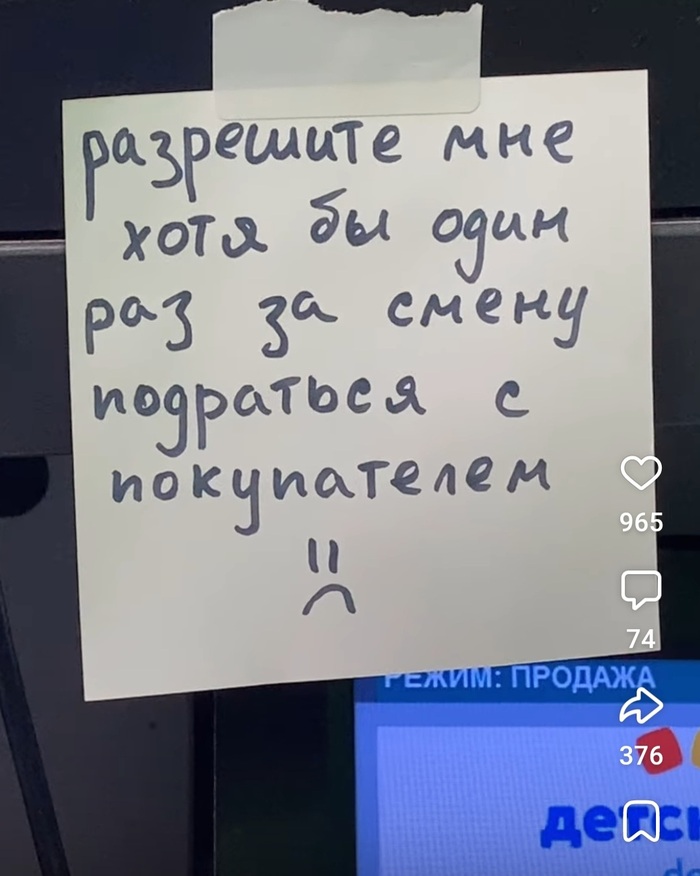 разрешите мне
хотя бы один
раз за смену
подраться с
покупателем
965
74
РЕЖИМ: ПРОДАЖА
376